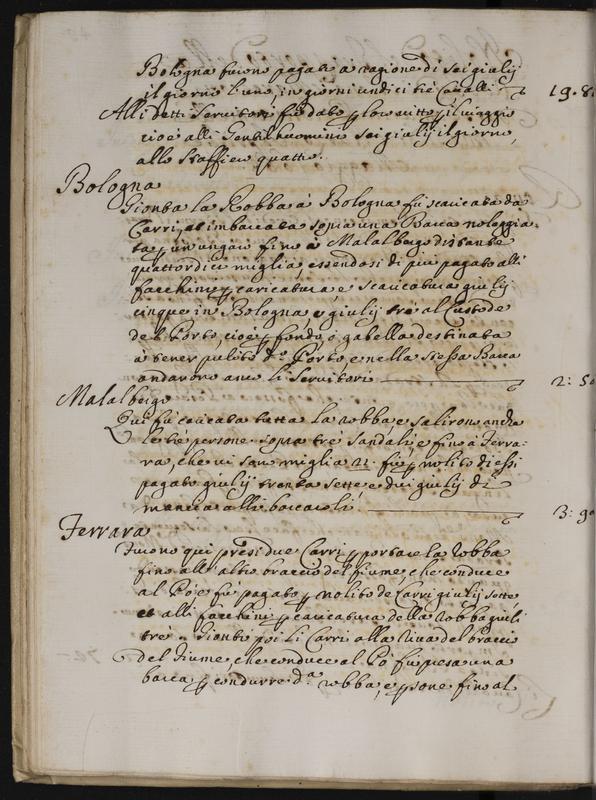 Bologna furono pagati à ragione di sei giulij
il giorno l'uno, in giorni undici trè Cavalli 19.8
Alli detti Servitori fù dato p loro vitto p il viaggio
cioè alli Gentilhuomini sei giulij il giorno,
allo Staffiere quattro.
Bologna
Gionta la Robba à Bologna fù scaricata da
Carri, et imbarcata sopra una Barca noleggia=
ta p un ungaro fino à Malalbergo distante
quattordici miglia, essendosi di più pagato alli
facchini p caricatura, e scaricatura giulij
cinque in Bologna, e giulij trè al Custode
del Porto, cioè p fondo, ò gabella destinata
à tener pulito do. Porto, e nella stessa Barca
andarono anco li Servitori 2: 50
Malalbergo
Qui fù caricata tutta la robba e salirono anche
le trè persone sopra trè Sandali, e fino à Ferra=
ra, che vi sono miglia 22. fù p nolito di essi
pagato giulij trenta sette e dui giulij di
mancia alli barcaroli 3: 90
Ferrara
Furono qui presi due Carri p portare la robba
fino all' altro braccio del fiume, che conduce
al Pò e fù pagato p nolito de Carri giulij sette
et alli facchini p caricatura della robba giulij
trè. Gionti poi li Carri alla riva del braccio
del fiume, che conduce al Pò fù presa una
barca p condurre da. robba, e psone fino al